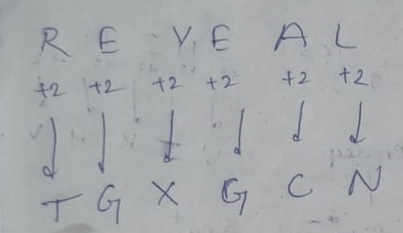 R E V E A L
+2 +2 +2 +2 +2 +2
T G X G C N